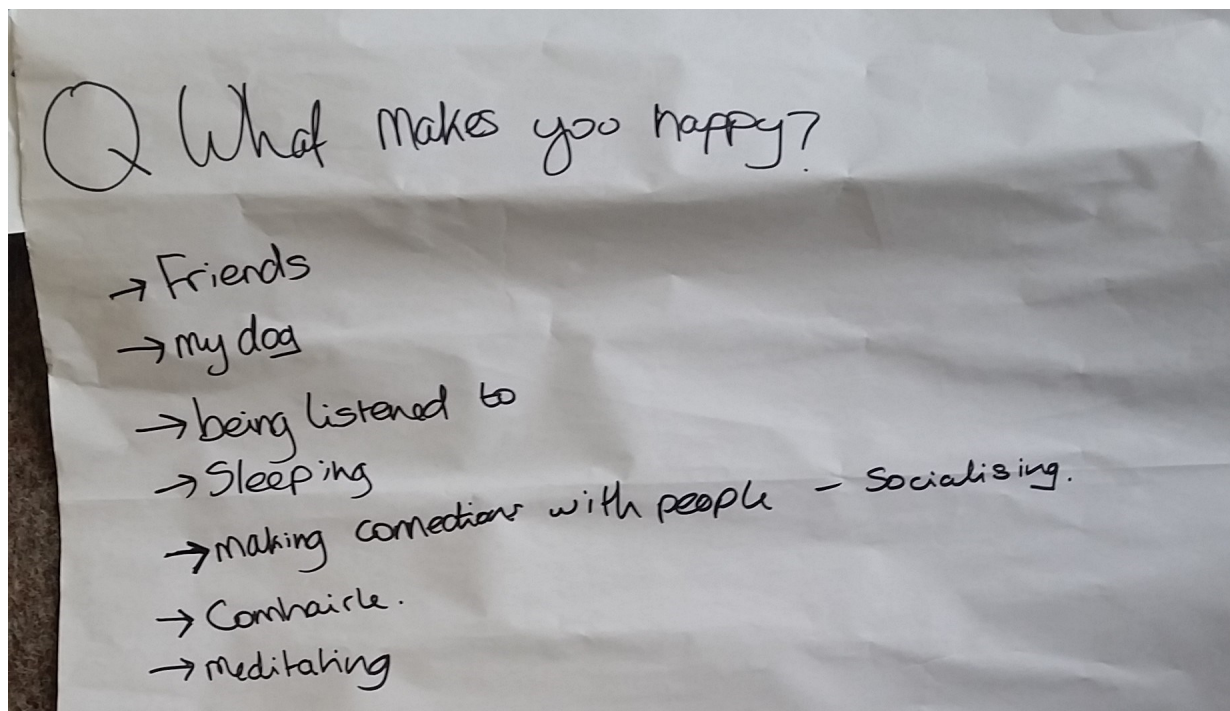 Q What makes you happy?
→ Friends
→ my dog
→ being listened to
→ Sleeping
→ making connections with people - Socialising.
→ Comhairle.
→ meditating